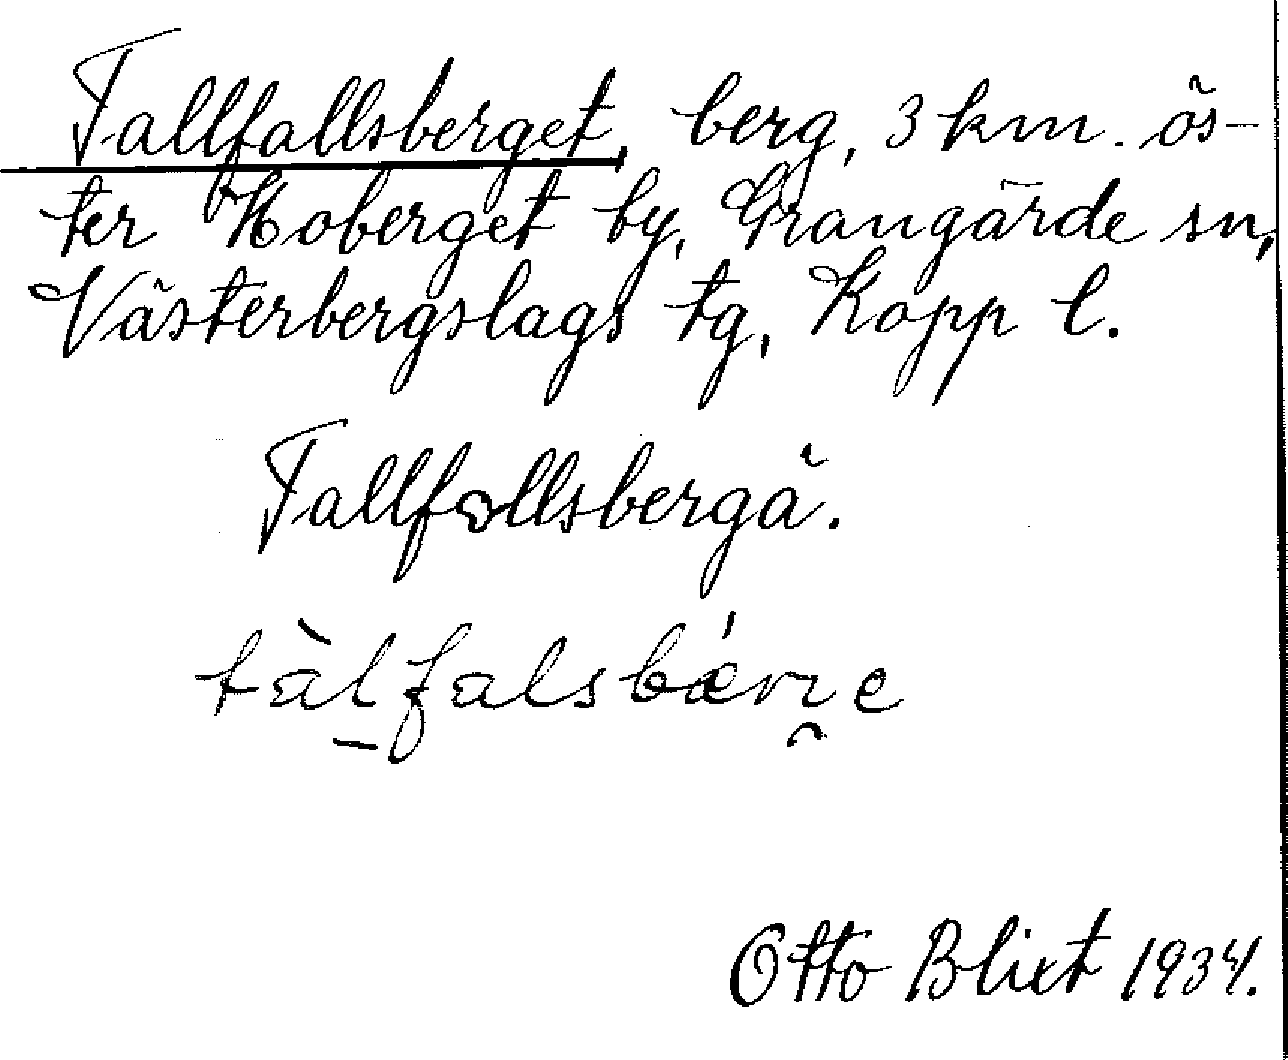 Tallfallsberget, berg, 3 km. ös-
ter Hoberget by, Grangärde sn,
Västerbergslags tg, Kopp l.
Tallfallsbergä.
tàlfalsbǽrı̯e
Otto Blixt 1934.